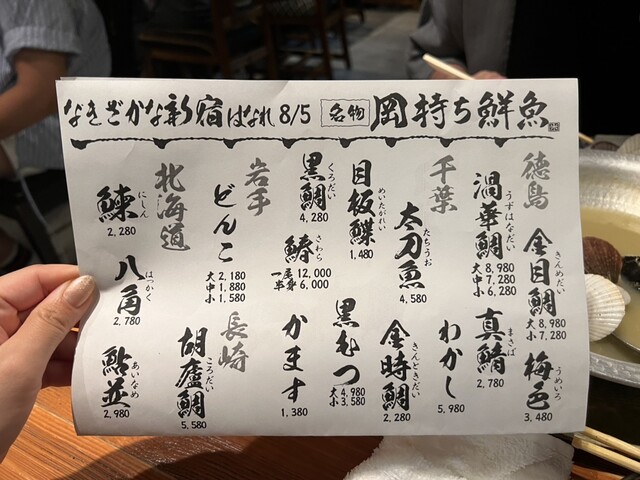 なきざかな新宿はなれ 8/5 名物 岡持ち鮮魚
徳島
金目鯛 きんめだい
大 8,980
小 7,280
梅色 うめいろ
3,480
渦華鯛 うずはなだい
大 8,980
中 7,280
小 6,280
真鯖 まさば
2,780
千葉
わかし
5,980
太刀魚 たちうお
4,580
金時鯛 きんときだい
2,280
目板鰈 めいたがれい
1,480
黒むつ
大 4,980
小 3,580
黒鯛 くろだい
4,280
鰆 さわら
一尾 12,000
半身 6,000
かます
1,380
岩手
どんこ
大 2,180
中 1,880
小 1,580
長崎
胡廬鯛 ころだい
5,580
北海道
鰊 にしん
2,280
八角 はっかく
2,780
鮎並 あいなめ
2,980